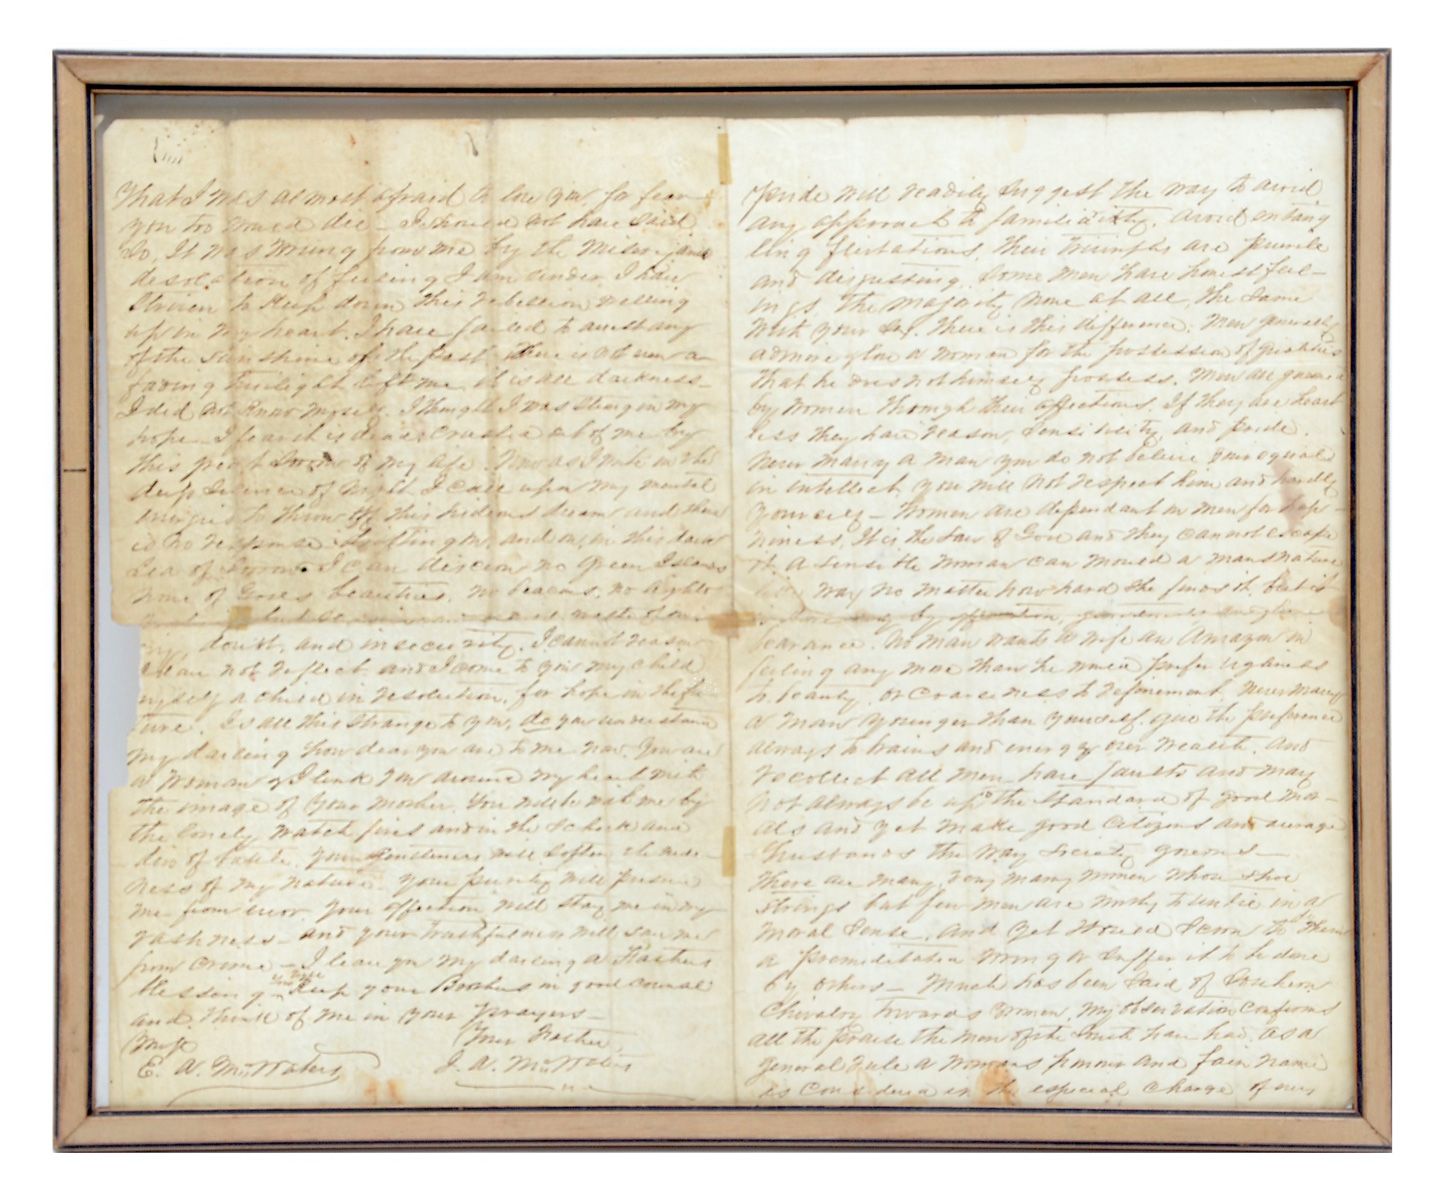 that I was almost afraid to love you for fear
you too would die – I should not have said
so, It was wrung from me by the misery and
desolation of feeling I am under I have
striven to keep down this rebellion welling
up in my heart. I have failed to arrest any
of the sunshine of the Past. There is not even a
fading twilight left me, it is all darkness –
I did not know myself. I thought I was strong in my
hope – I fear it is being crushed out of me by
this great sorrow of my life. Now as I write in the
deep silence of Night I call upon my mental
energies to throw off this hideous dream and there
is no response. and on, in this dark
sea of I can discern no green Islands
none of God's beauties, no beacons, no lights
but
doubt, and insecurity. I cannot reason
I can not reflect and I come to you my child
myself a child in resolution, for hope in the fu-
ture. Is all this strange to you, do you understand
my darling how dear you are to me now. You are
a woman & I link you around my heart with
the image of your mother. You will be with me by
the lonely watch fires and in the shock and
din of battle. Your gentleness will soften the rude-
ness of my nature – your purity will preserve
me from error, your affection will stay me in my
rashness – and your truthfulness will save me
from crime – I leave you my darling a Father's
blessing – Keep your Brothers in good counsel
and think of me in your prayers –
Your Father,
Miss
E. A. McWaters J. A. McWaters
pride will readily suggest the way to avoid
any approach to familiarity. Avoid entang
ling flirtations, their triumphs are puerile
and disgusting. Some men have honest feel-
ings, the majority none at all, the same
with your sex. There is this difference. Men generally
admire & love a woman for the possession of qualities
that he does not himself possess. Men are governed
by women through their affections. If they are heart
less they have reason, sensibility, and pride.
Never marry a man you do not believe your equal
in intellect, you will not respect him and hardly
yourself – Women are dependant on men for hap-
piness. It is the law of God and they cannot escape
it. A sensible woman can mould a mans nature
way no matter how hard she finds it, but it
by affection, gentleness, and
bearance. No man wants a wife an Amazon in
feeling any more than he would prefer ugliness
to beauty, or coarseness to refinement. Never marry
a man younger than yourself. give the preference
always to brains and energy over wealth. And
recollect all men have faults and may
not always be up to the standard of good mor-
als and yet make good citizens and average
husbands the way society goes –
There are many, very many women whose shoe
strings but few men are worthy to untie in a
moral sense, and yet would scorn to them
a premeditated wrong or suffer it to be done
by others – Much has been said of Southern
Chivalry towards women, my observation confirms
all the praise the men of the South have had. As a
general rule a womans honour and fair name
is considered in the especial charge of every